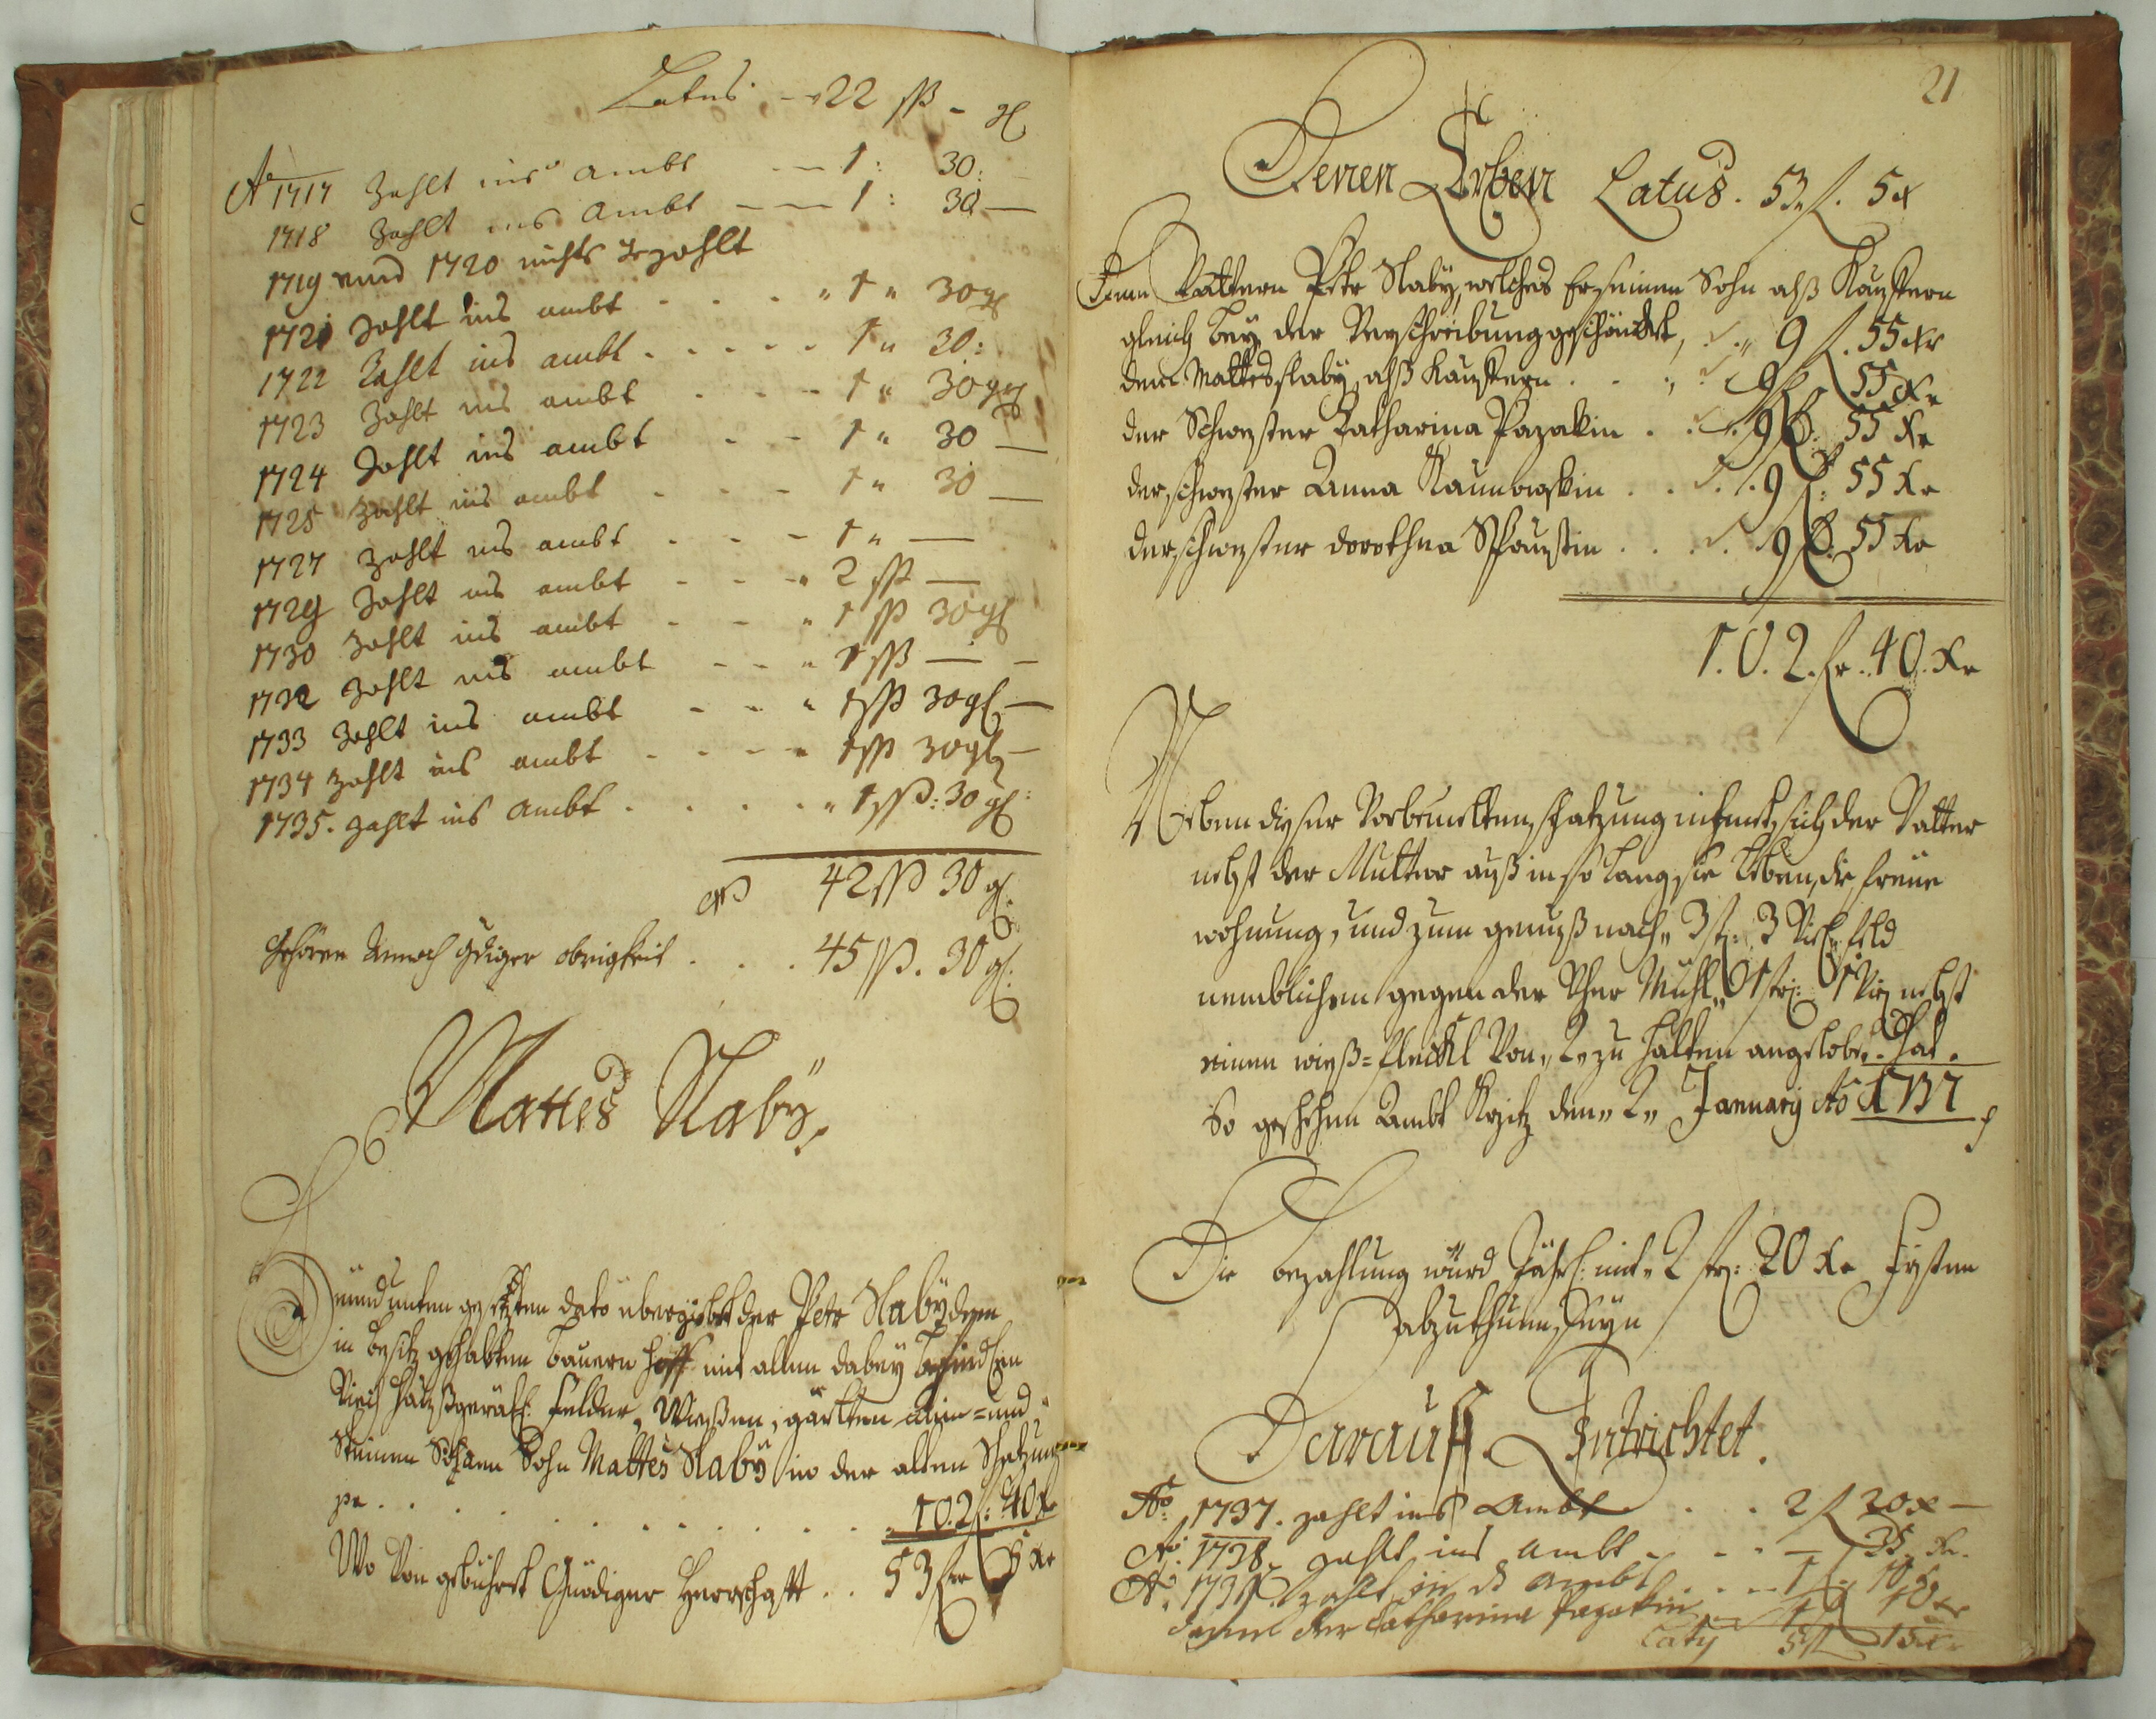 Latus - 22 ßß - gl
Ao 1717 Zahlt ins ambt - 1: 30:
1718 Zahlt ins Ambt - 1: 30 -
1719 und 1720 nichts bezahlt
1721 Zahlt ins ambt . . . " 1 " 30 gl
1722 Zahlt ins ambt . . . . . 1 " 30:
1723 Zahlt ins ambt . . . 1 " 30 gl
1724 Zahlt ins ambt - - 1 " 30 -
1725 Zahlt ins ambt . . - 1 " 30 -
1727 Zahlt ins ambt . . - 1 " -
1729 Zahlt ins ambt - - - 2 ßß -
1730 Zahlt ins ambt - - " 1 ßß 30 gl
1732 Zahlt ins ambt - - " 1 ßß - -
1733 Zahlt ins ambt - - " 1 ßß 30 gl -
1734 Zahlt ins ambt . - - - 1 ßß 30 gl -
1735. Zahlt ins Ambt . . . . . " 1 ßß: 30 gl:
42 ßß 30 gl.
Gehören annoch Gdiger obrigkeit . . . 45 ßß. 30 gl.
Mattes Slabÿ.
unten gesetzten dato übergiebt der Petr Slabÿ dessen
in besitz gehabten bauern hoff mit allen dabeÿ befindl.
Viech haußgeräth: Felder, Wießen, gärtten ein= und
Steinen Sohn Mattes Slabÿ in der alten Schatzung
pr . . . . . . . . . . . 102 f: 40 Xr
Wo Von gebühret Gnädiger Herrschafft . . 53 fr 5 Xr
21
Denen Erben Latus. 53. f. 5 x
Dem Vattern Petr Slaby, welches Er seinem Sohn alß Kauffern
gleich beÿ der Verschreibung geschäncket, . . " 9 f. 55 Xr
dem Mattes slabÿ alß Kauffern . . " . 9 f. 55 Xr
der Schwester Catharina Pazakin . . . 9 f. 55 Xr
der schwester Anna . . . . 9 f: 55 Xr
der schwester dorothea . . . . 9 f: 55 Xr
1.0.2. fr. 40. Xr
Neben dieser Vorbemelten schatzung sich der Vatter
nebst der Mutter auß in so lang sie leben, die freÿe
wohnung, und zum genuß nach " 3 str: 3 Virtl feld
nemblichen gegen der Mühl " 1 str: 1 Vir nebst
einen wieß=fleckl Von " 2 " zu halten angelobt. hat.
So geschehen Ambt den " 2 " January Ao 1737
Die bezahlung würd Jährl: mit " 2 fr: 20 Xr Fristen
abzuthun seÿn
Darauff Entrichtet.
Ao 1737. zahlt ins Ambt . . 2 f 20 x -
Ao: 1738. zahlt ins Ambt . - - - 35 Xr.
Ao. 1739. zahlt in ds Ambt . . . 1 f 10 Xr
der Catharina Pazakin 1 f 10 Xr
Latus 5 f 15 Xr